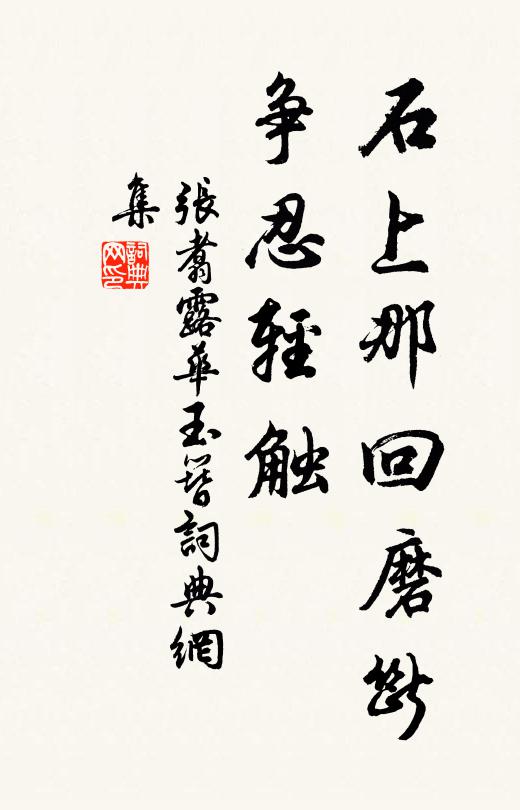 石上那回磨斷
争忍輕触
張翥露華玉簪詞典網
集
詞典
网印